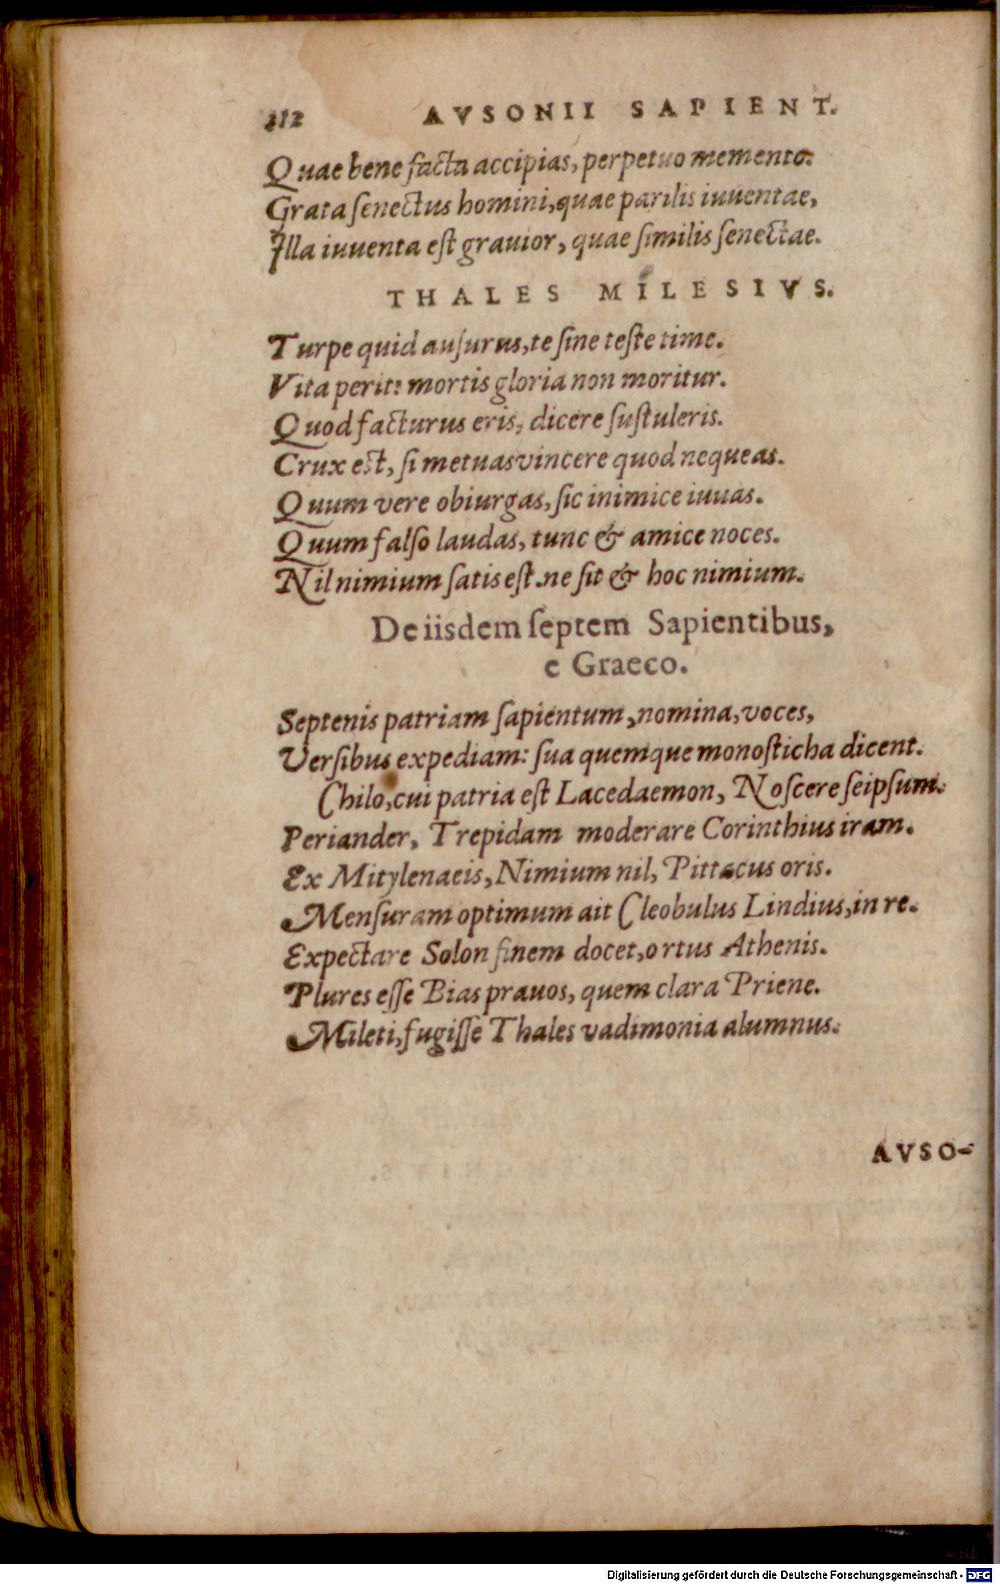 112 AVSONII SAPIENT.
Quae bene facta accipias, perpetuo memento:
Grata ſenectus homini, quae parilis iuuentae,
Illa iuuenta eſt grauior, quae ſimilis ſenectae.
THALES MILESIVS.
Turpe quid auſurus, te ſine teſte time.
Vita perit: mortis gloria non moritur.
Quod facturus eris, dicere ſuſtuleris.
Crux est, ſi metuas vincere quod nequeas.
Quum vere obiurgas, ſic inimice iuuas.
Quum falſo laudas, tunc & amice noces.
Nil nimium ſatis eſt. ne ſit & hoc nimium.
De iisdem ſeptem Sapientibus,
e Graeco.
Septenis patriam ſapientum, nomina, voces,
Verſibus expediam: ſua quemque monoſticha dicent.
Chilo, cui patria eſt Lacedaemon, Noſcere ſeipſum.
Periander, Trepidam moderare Corinthius iram.
Ex Mitylenaeis, Nimium nil, Pittacus oris.
Menſuram optimum ait Cleobulus Lindius, in re.
Expectare Solon finem docet, ortus Athenis.
Plures eſſe Bias prauos, quem clara Priene.
Mileti, fugiſſe Thales vadimonia alumnus.
AVSO-
Digitalisierung gefördert durch die Deutsche Forschungsgemeinschaft - DFG